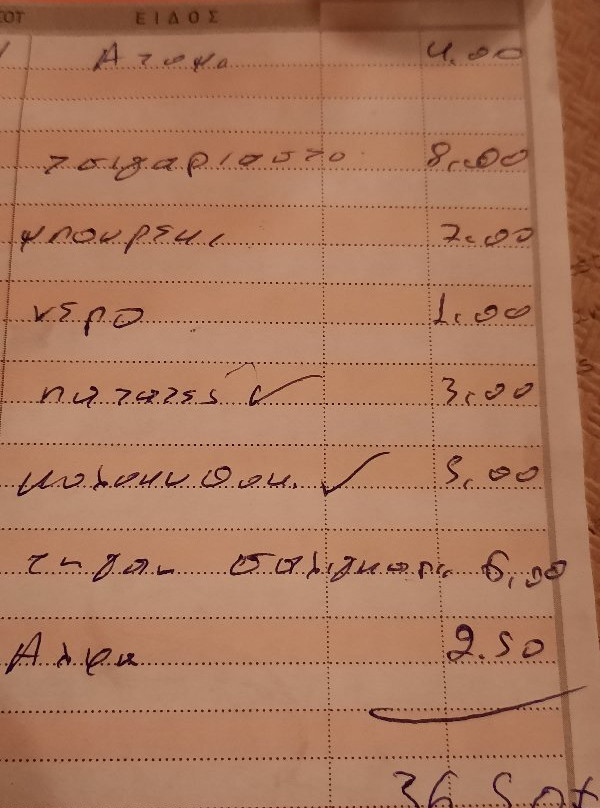 ΣΟΤ ΕΙΔΟΣ
Ατομα 4.00
τσιγαριαστο 8.00
μπουρεκι 7.00
νερο 1.00
πατατες ✓ 3.00
κολοκυθοκ. ✓ 5.00
τηγαν σαλιγκαρι 6,00
Αλφα 2.50
36.50